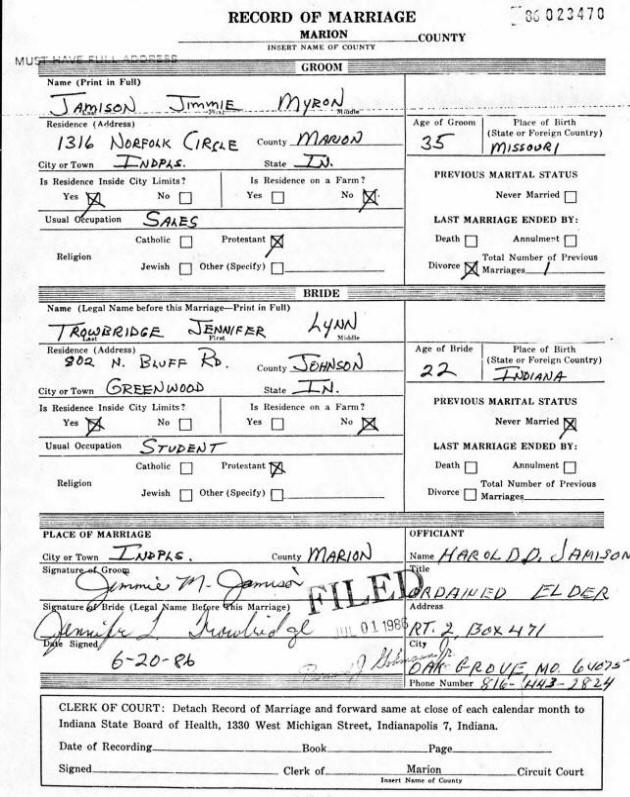 86 023470
RECORD OF MARRIAGE
MARION COUNTY
INSERT NAME OF COUNTY
MUST HAVE FULL ADDRESS
GROOM
Name (Print in Full)
JAMISON JIMMIE MYRON
Last First Middle
Residence (Address)
1316 NORFOLK CIRCLE County MARION
City or Town INDPLS. State IN.
Is Residence Inside City Limits? Is Residence on a Farm?
Yes ☒ No ☐ Yes ☐ No ☒
Usual Occupation SALES
Catholic ☐ Protestant ☒
Religion
Jewish ☐ Other (Specify) ☐
Age of Groom Place of Birth
(State or Foreign Country)
35 MISSOURI
PREVIOUS MARITAL STATUS
Never Married ☐
LAST MARRIAGE ENDED BY:
Death ☐ Annulment ☐
Total Number of Previous
Divorce ☒ Marriages 1
BRIDE
Name (Legal Name before this Marriage—Print in Full)
TROWBRIDGE JENNIFER LYNN
Last First Middle
Residence (Address)
802 N. BLUFF RD. County JOHNSON
City or Town GREENWOOD State IN.
Is Residence Inside City Limits? Is Residence on a Farm?
Yes ☒ No ☐ Yes ☐ No ☒
Usual Occupation STUDENT
Catholic ☐ Protestant ☒
Religion
Jewish ☐ Other (Specify) ☐
Age of Bride Place of Birth
(State or Foreign Country)
22 INDIANA
PREVIOUS MARITAL STATUS
Never Married ☒
LAST MARRIAGE ENDED BY:
Death ☐ Annulment ☐
Total Number of Previous
Divorce ☐ Marriages
PLACE OF MARRIAGE
City or Town INDPLS. County MARION
Signature of Groom
Jimmie M. Jamison
Signature of Bride (Legal Name Before This Marriage)
Jennifer L. Trowbridge
Date Signed
6-20-86
FILED
JUL 01 1986
OFFICIANT
Name HAROLD D. JAMISON
Title
ORDAINED ELDER
Address
RT. 2, BOX 471
City
OAK GROVE, MO. 64075
Phone Number 816-443-2824
CLERK OF COURT: Detach Record of Marriage and forward same at close of each calendar month to
Indiana State Board of Health, 1330 West Michigan Street, Indianapolis 7, Indiana.
Date of Recording Book Page
Signed Clerk of Marion Circuit Court
Insert Name of County